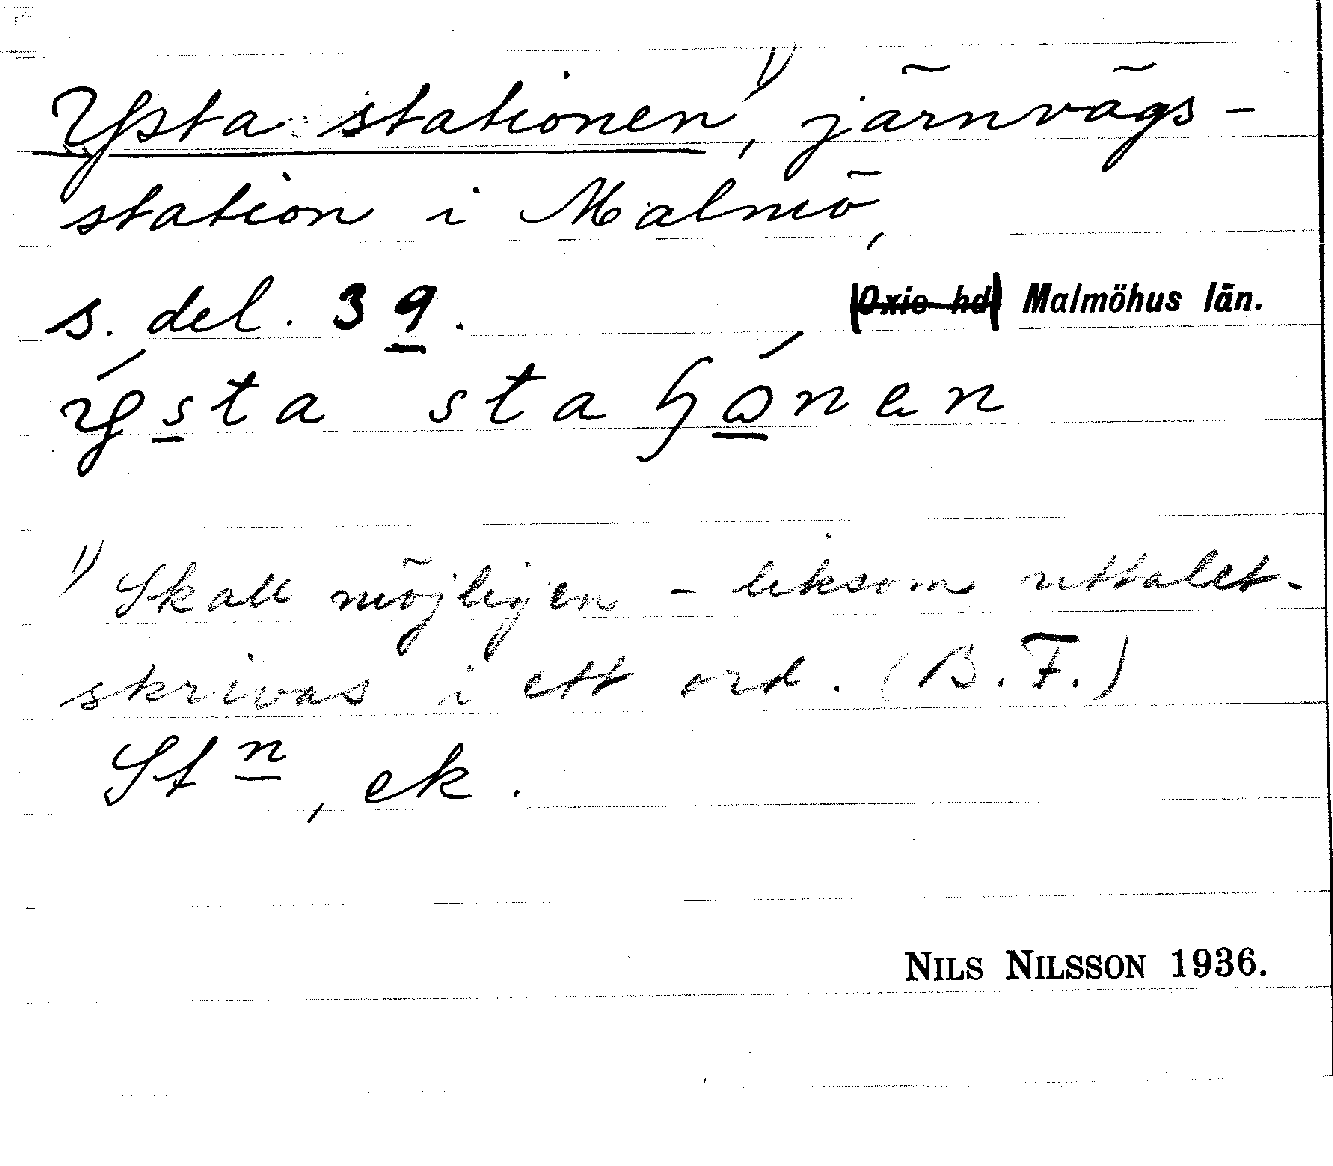 Ysta stationen¹⁾, järnvägs-
station i Malmö,
s. del. 39. (Oxie hd) Malmöhus län.
ýsta staɧǿnen
¹⁾ Skall möjligen - liksom uttalet -
skrivas i ett ord. (B. F.)
Stn, ek.
NILS NILSSON 1936.